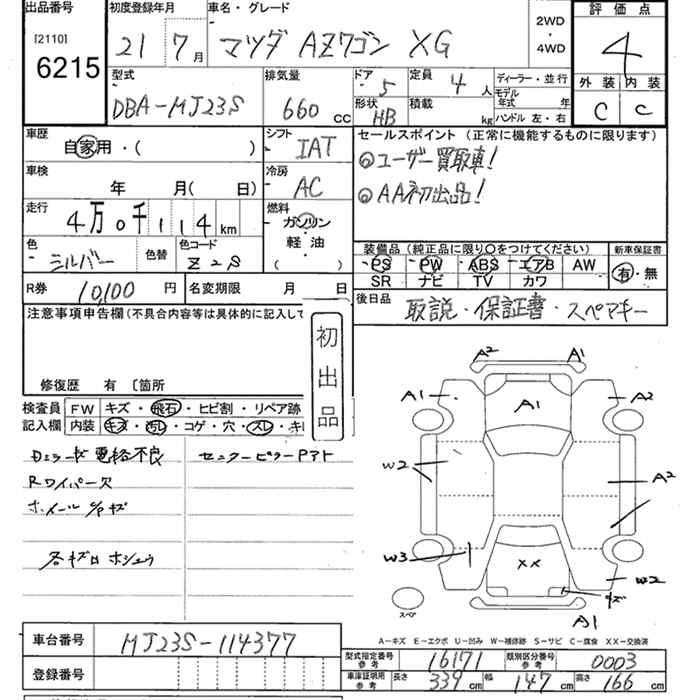 出品番号 初度登録年月 車名・グレード 評価点
[2110] 6215 21 7月 マツダ AZワゴン XG 2WD・4WD 4
型式 排気量 ドア 定員 ディーラー・並行 外装 内装
DBA-MJ23S 660cc 5 4人 モデル年式 年 C C
形状 HB 積載 kg ハンドル 左・右
車歴 自家用・( ) シフト IAT セールスポイント (正常に機能するものに限ります)
車検 年 月( 日) 冷房 AC ◎ユーザー買取車!
走行 4万0千114km 燃料 ガソリン 軽油 ( ) ◎AA初出品!
色 シルバー 色替 色コード Z2S
装備品(純正品に限り○をつけてください) 新車保証書
PS PW ABS エアB AW 有・無
SR ナビ TV カワ
R券 10,100円 名変期限 月 日
後日品 取説・保証書・スペアキー
注意事項申告欄(不具合内容等は具体的に記入して
初出品
修復歴 有 〔箇所
検査員記入欄 FW キズ・飛石・ヒビ割・リペア跡
内装 キズ・汚れ・コゲ・穴・スレ・キ
Dミラーキズ 電格不良 センターピラーPアト
Rワイパー欠
ホイールC/Pキズ
各キズ凹 ホシュウ
A2 A1
A1 A1 A2
W2 A2
W3 XX W2
キズ
スペア A1
A-キズ E-エクボ U-凹み W-補修跡 S-サビ C-腐食 XX-交換済
車台番号 MJ23S-114377
型式指定番号 参考 16171 類別区分番号 参考 0003
登録番号
車庫証明用 参考 長さ 339cm 幅 147cm 高さ 166cm